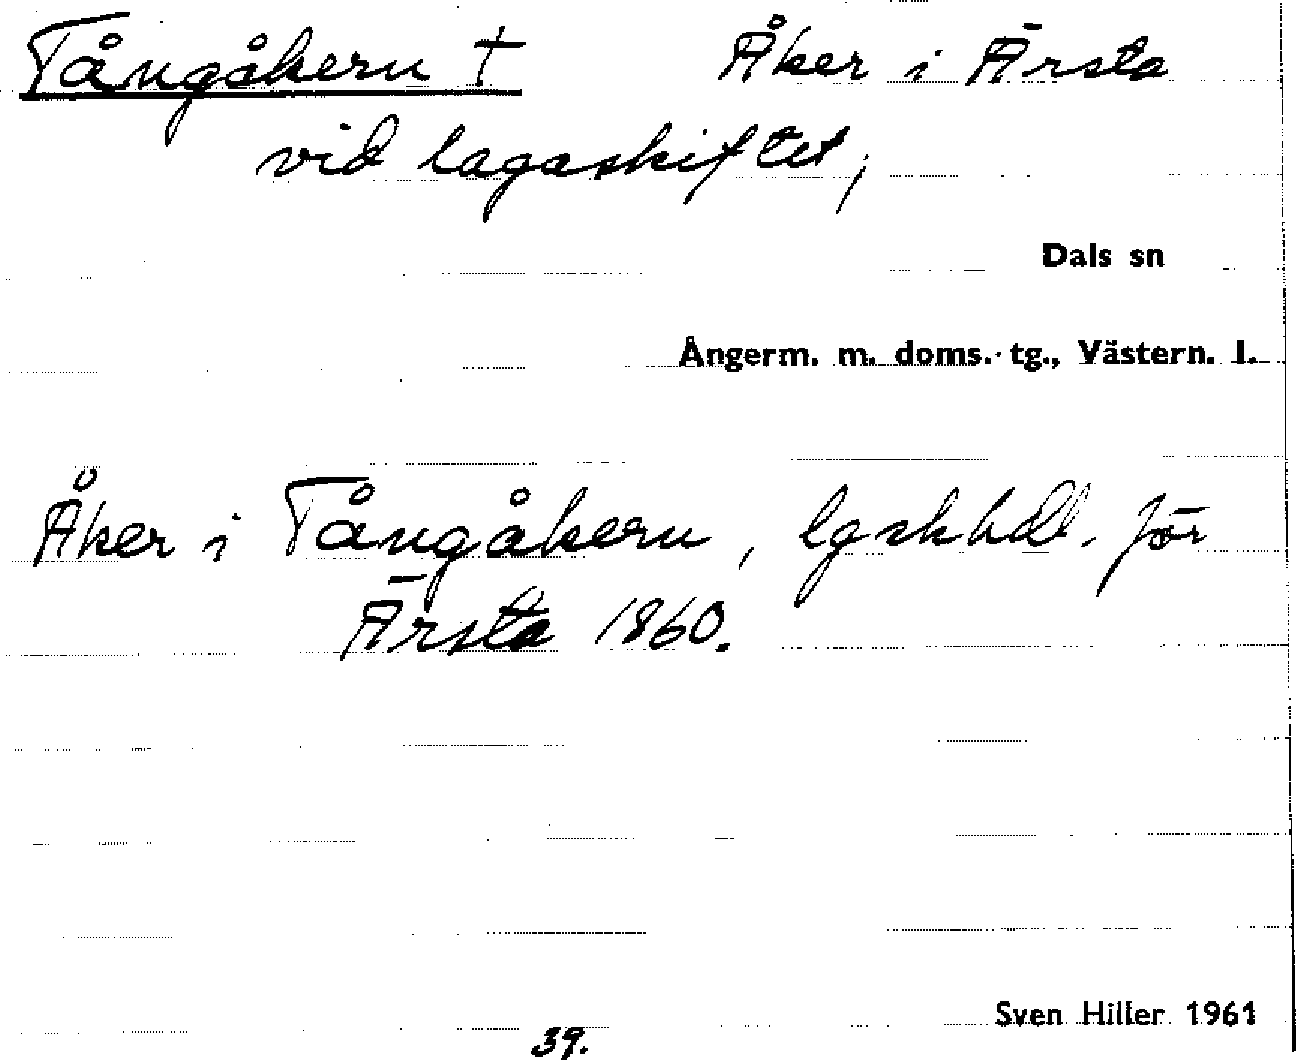 Tångåkern † Åker i Ärsta
vid lagaskiftet,
Dals sn
Ångerm. m. doms. tg., Västern. l.
Åker i Tångåkern, lgskhdl. för
Ärsta 1860.
Sven Hiller 1961
39.